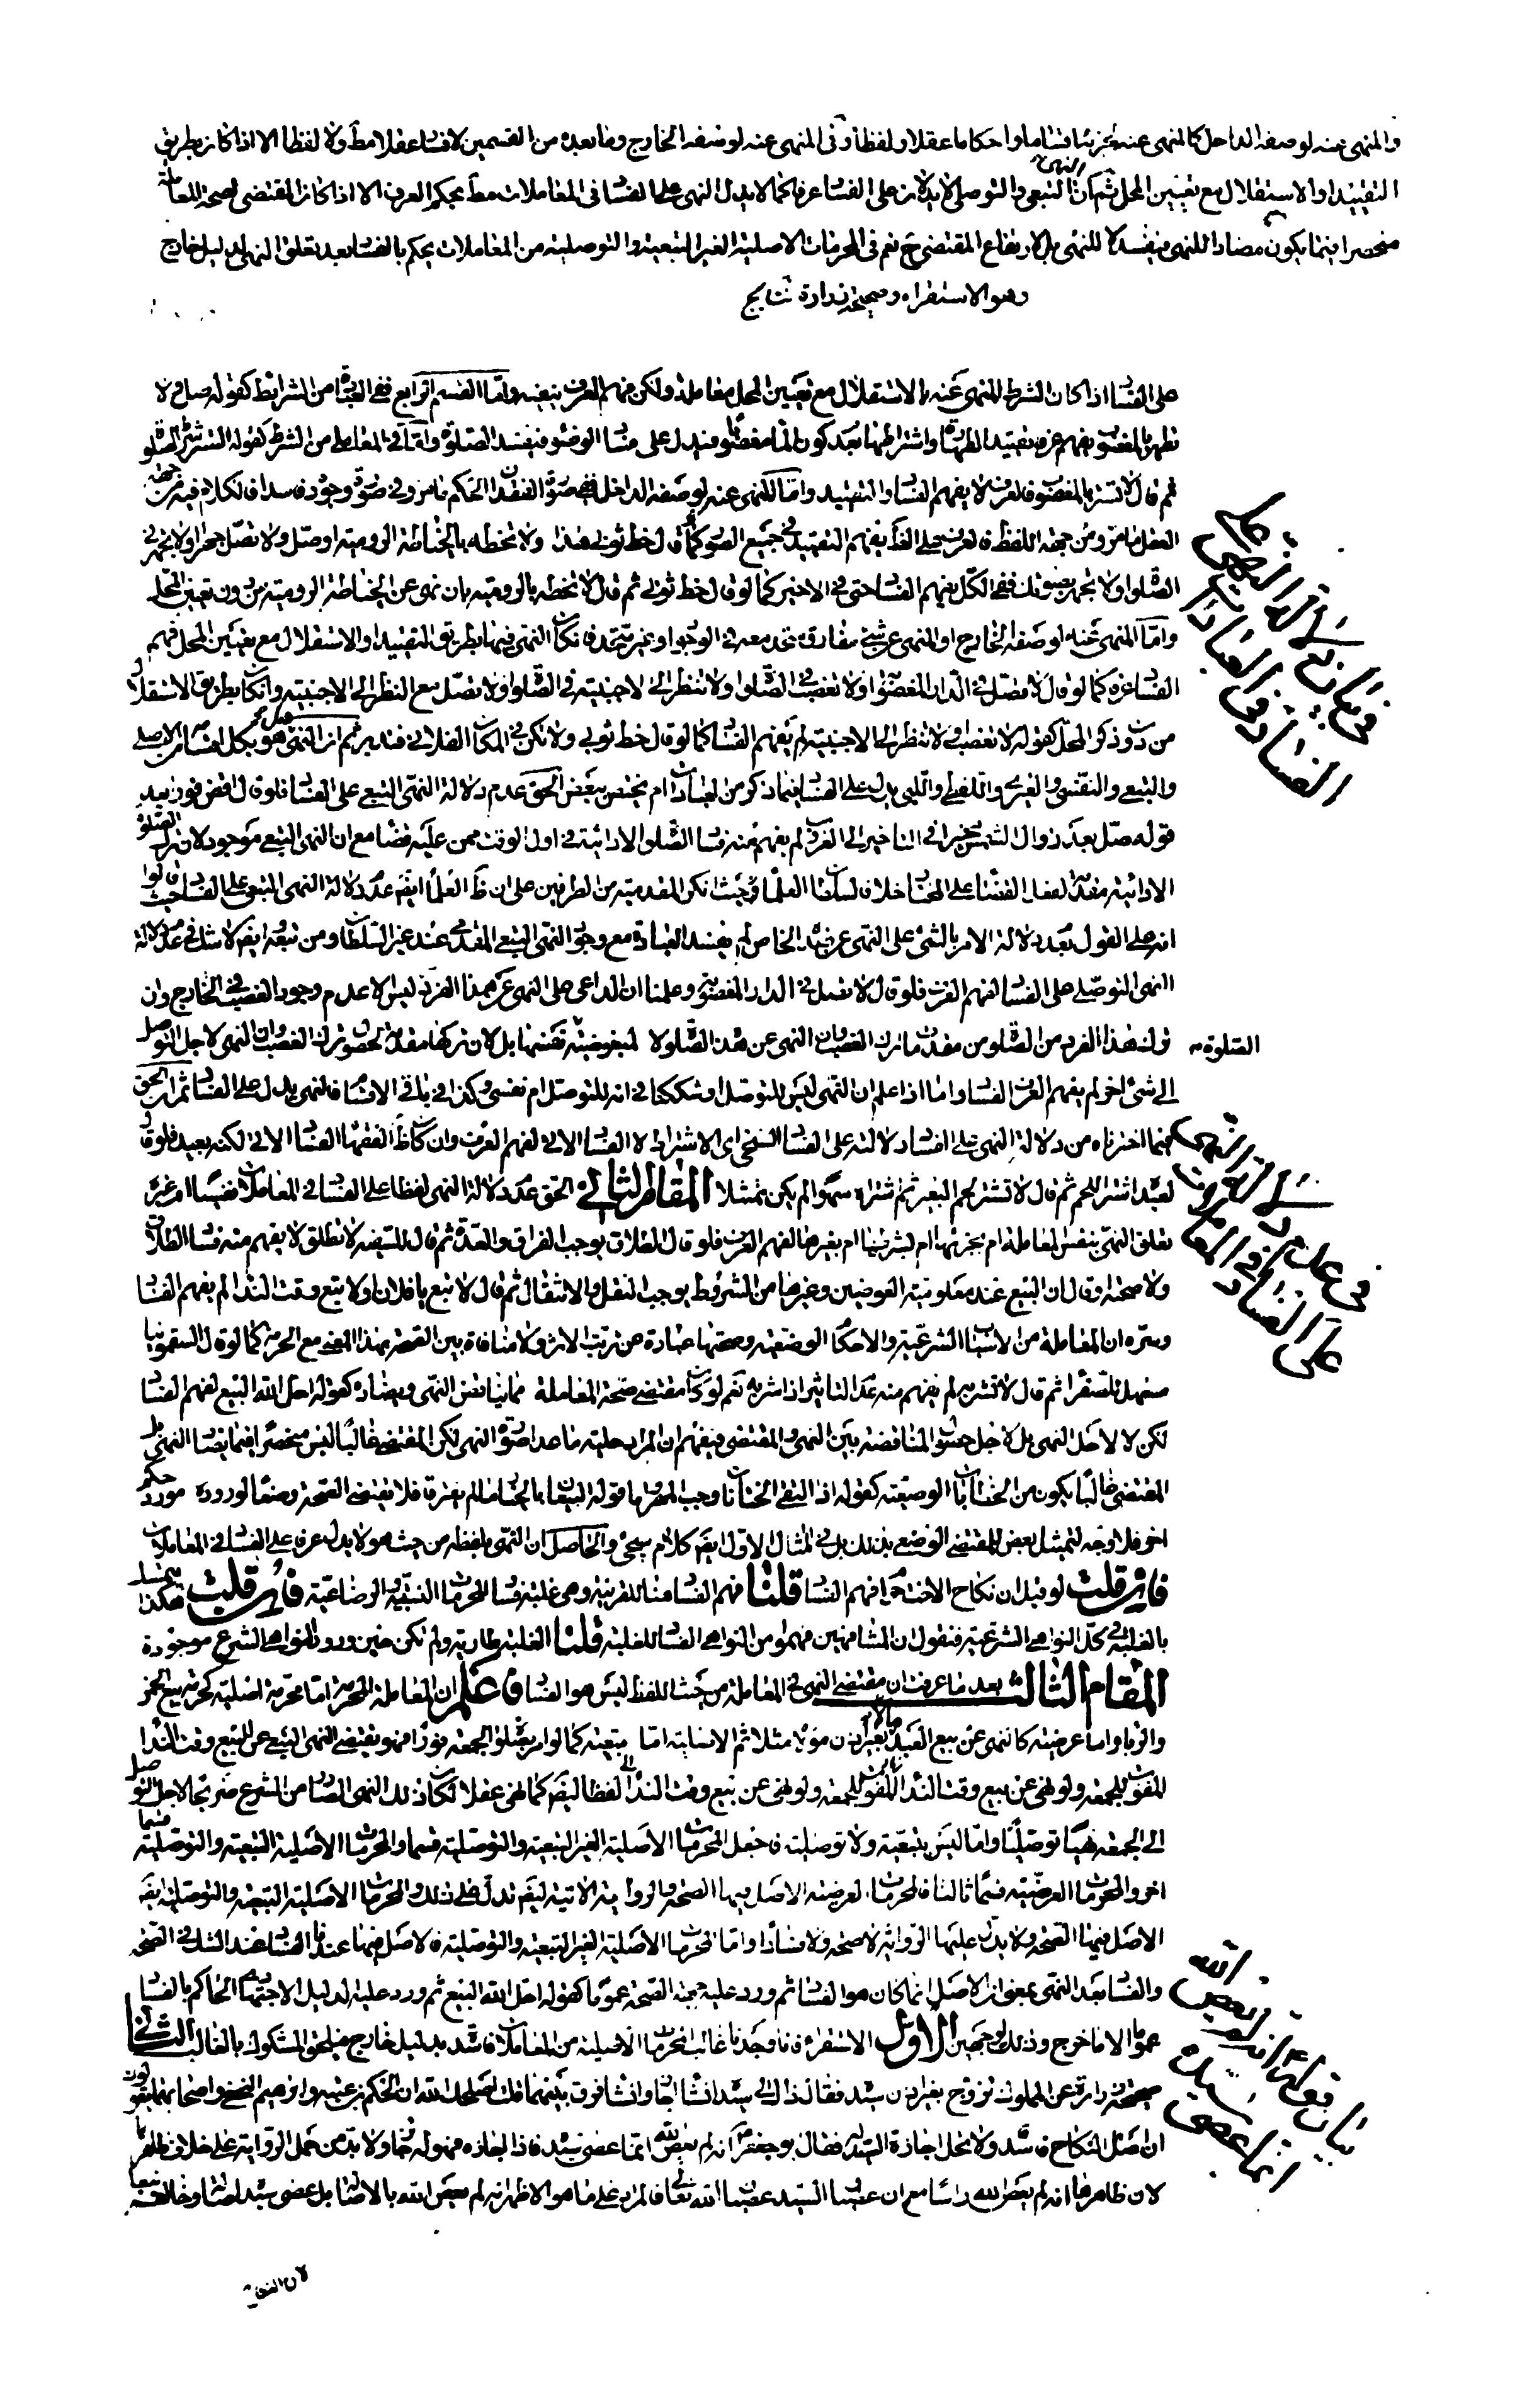 والمنهى عنه لوصفه الداخل كالمنهى عنه لجزئه اقساما واحكاما عقلا ولفظا وفى المنهى عنه لوصفه الخارج وما بعده من القسمين لا فساد عقلا مط ولا لفظا الا اذا كان بطريق
التقييد او الاستقلال مع تعيين المحل ثم ان النهى التبعى والتوصلى لا يدلان على الفساد عرفا كما لا يدل النهى على الفساد فى المعاملات مط بحكم العرف الا اذا كان المقتضى لصحة المعاملة
منحصرا فيما يكون مضادا للنهى فيفسد لا للنهى بل لارتفاع المقتضى ح نعم فى المحرمات الاصلية الغير التبعية والتوصلية من المعاملات يحكم بالفساد بعد تعلق النهى لدليل خارج
وهو الاستقراء وصحيحة زرارة نتايج
على الفساد اذا كان الشرط المنهى عنه بالاستقلال مع تعيين المحل معاملة ولكن فهم العرف بتبعيه واما القسم الرابع ففى العبادة من الشرايط كقوله صل ولا
تطهر بالمغصوب يفهم عرفا تقييد الطهارة واشتراطها بعد كون الماء مغصوبا فيدل على فساد الوضوء فيفسد الصلوة واما فى المعاملى من الشرط كقوله استتر للصلوة
ثم قال لا تستتر بالمغصوب فالعرف لا يفهم الفساد والتقييد واما المنهى عنه لوصفه الداخل ففى صورة الفقدان الحكم فامر وفى صورة وجوده فاسد والكلام فيه من جهة
العقل ما مر ومن جهة اللفظ فالعرف على الظ يفهم التقييد فى جميع الصور كما لو قال خط ثوبى هذا ولا تخطه بالخياطة الرومية او صل ولا تصل جهرا ولا تجهر فى
الصلوة ولا تجهر بصوتك ففى الكل يفهم الفساد حتى فى الاخير كما لو قال خط ثوبى ثم قال لا تخطه بالرومية بان نهى عن الخياطة الرومية من دون تعيين المحل
واما المنهى عنه لوصفه الخارج او المنهى عن شيئ مفارق متحد معه فى الوجود او غير متحد فان كان النهى فيها بطريق التقييد او الاستقلال مع تعيين المحل فهم
الفساد عرفا كما لو قال لا تصل فى الدار المغصوبة او لا تغصب فى الصلوة او لا تنظر الى الاجنبية فى الصلوة او لا تصل مع النظر الى الاجنبية وان كان بطريق الاستقلال
من دون ذكر المحل كقوله لا تغصب او لا تنظر الى الاجنبية لم يفهم الفساد كما لو قال خط ثوبى ولا تكن فى المكان الفلانى فتدبر ثم ان النهى هل هو بكل اقسامه من الاصلى
والتبعى والنفسى والغيرى واللفظى واللبى يدل على الفساد فيما ذكر من العبادات ام يختص ببعض الحق عدم دلالة النهى التبعى على الفساد فلو قال اقض فورا بعد
قوله صل بعد زوال الشمس مخيرا فى التاخير الى الغروب لم يفهم منه فساد الصلوة الادائية فى اول الوقت ممن عليه قضاء مع ان النهى التبعى موجود لان ترك الصلوة
الادائية مقدمة لفعل القضاء على المختار خلافا لسلطان العلماء حيث انكر المقدمية من الطرفين على ان ظ العلماء ايضا عدم دلالة النهى التبعى على الفساد حيث قالوا
انه على القول بعدم دلالة الامر بالشئ على النهى عن ضده الخاص لم يفسد العبادة مع وجود النهى التبعى المقدمى عند غير السلطان ومن تبعه ايضا لا شك فى عدم دلالة
النهى التوصلى على الفساد لفهم العرف فلو قال لا تصل فى الدار المغصوبة وعلمنا ان الداعى على النهى عن هذا الفرد ليس الا عدم وجود الغصب فى الخارج وان
ترك هذا الفرد من الصلوة من مقدمات ترك الغصب فان النهى عن هذه الصلوة لا لمبغوضيته نفسها بل لان تركها مقدمة لحصول ترك الغصب وان النهى لاجل التوصل
الصلوة
الى شئ اخر لم يفهم العرف الفساد واما اذا علم ان النهى ليس للتوصل او شككنا فى انه للتوصل ام نفسى وكذا فى باقى الاقسام فالنهى يدل على الفساد ثم ان الحق
فيما اخترناه من دلالة النهى على الفساد دلالته على الفساد السنخى اى الاشتراط لا الفساد الانى لفهم العرف وان كان ظ الفقهاء الفساد الانى لكنه بعيد فلو قال
لعبد اشتر اللحم ثم قال لا تشتر لحم البقر ثم شراه سهوا لم يكن ممتثلا المقام الثانى الحق عدم دلالة النهى لفظا على الفساد فى المعاملات نفسيا ام غيره
تعلق النهى بنفس المعاملة ام بجزئها ام بشرطها ام بغيرها لفهم العرف فلو قال الطلاق يوجب الفراق والعدة ثم قال للسفيه لا تطلق لا يفهم منه فساد الطلاق
ولا صحته وقال ان البيع عند معلومية العوضين وغيرها من الشروط يوجب النقل والانتقال ثم قال لا تبع يا فلان او لا تبع وقت النداء لم يفهم الفساد
وسره ان المعاملة من الاسباب الشرعية والاحكام الوضعية وصحتها عبارة عن ترتب الاثر ولا منافاة بين الصحة بهذا المعنى مع الحرمة كما لو قال السقمونيا
مسهل للصفراء ثم قال لا تشربه لم يفهم منه عدم التاثير اذا شربه نعم لو كان مقتضى صحة المعاملة مما يناقض النهى ويضاده كقوله احل الله البيع لفهم الفساد
لكن لا لاجل النهى بل لاجل حصول المناقضة بين النهى والمقتضى فيفهم ان المراد حلية ما عدا صورة النهى لكن المقتضى غالبا ليس منحصرا فيما يضاد النهى بل
المقتضى غالبا يكون من الخطابات الوضعية كقوله اذا التقى الختانان وجب المهر او قوله البيعان بالخيار ما لم يفترقا فلا تقتضى الصحة وضعا لوروده مورد حكم
اخر فلا وجه لتمثيل بعض للمقتضى الوضعى بذلك بل فى المثال الاول ايضا كلام سيجئ والحاصل ان النهى بلفظه من حيث هو لا يدل عرفا على الفساد فى المعاملات
فان قلت لو قيل ان نكاح الاخت حرام افهم الفساد قلنا فهم الفساد هنا للقرينة وهى غلبة فساد المحرمات النسبية والرضاعية فان قلت نتمسك هكذا
بالغلبة فى كل النواهى الشرعية فنقول ان المشافهين فهموا من النواهى الفساد للغلبة قلنا الغلبة طارية ولم تكن حين ورود النواهى الشرع موجودة
المقام الثالث بعد ما عرفت ان مقتضى النهى فى المعاملة من حيث اللفظ ليس هو الفساد فاعلم ان المعاملة المحرمة اما محرمة اصلية كحرمة بيع الخمر
والربا واما عرضية كالنهى عن بيع العبد ماله بغير اذن مولاه مثلا ثم الاصلية اما تبعية كما لو امر بصلوة الجمعة فورا فهو يقتضى النهى التبعى عن البيع وقت النداء
المفوت للجمعة ولو نهى عن بيع وقت النداء المفوت للجمعة ولو نهى عن بيع وقت النداء لفظا ايضا كما نهى عقلا لكان ذلك النهى الصادر من الشرع صريحا لاجل التوصل
الى الجمعة نهيا توصليا واما ليس بتبعية ولا توصلية فاجعل المحرمات الاصلية الغير التبعية والتوصلية قسما والمحرمات الاصلية التبعية والتوصلية قسما
اخر والمحرمات العرضية قسما ثالثا فالمحرمات العرضية الاصل فيها الصحة والرواية الاتية ايضا تدل على ذلك والمحرمات الاصلية التبعية والتوصلية ايضا
الاصل فيها الصحة ولا يدل عليها الرواية لا صحة ولا فسادا واما المحرمات الاصلية الغير التبعية والتوصلية فالاصل فيها عندنا الفساد عند الشك فى الصحة
والفساد بعد النهى بمعنى ان الاصل انما كان هو الفساد ثم ورد عليه جهة الصحة عموما كقوله احل الله البيع ثم ورد عليه الدليل الاجتهادى الحاكم بالفساد
عموما الا ما خرج وذلك لوجهين الاول الاستقراء فانا وجدنا غالب المحرمات الاصلية من المعاملات فاسدة بدليل خارج فيلحق المشكوك بالغالب الثانى
صحيحة زرارة عن المملوك تزوج بغير اذن سيده فقال ذاك الى سيده ان شاء اجاز وان شاء فرق بينهما قلت اصلحك الله ان الحكم بن عتيبة وابرهيم النخعى واصحابهما يقولون
ان اصل النكاح فاسد ولا يحل اجازة السيد له فقال ابو جعفر انه لم يعص الله انما عصى سيده فاذا اجازه فهو له جايز ولا بد من حمل الرواية على خلاف ظاهرها
لان ظاهرها انه لم يعص الله راسا مع ان عصيان السيد عصيان الله تعالى فالمراد على ما هو الاظهر انه لم يعص الله بالاصالة بل عصى سيده اصالة وخالقه تبعا
فى بيان دلالة النهى على الفساد فى العبادات
فى عدم دلالة النهى على الفساد فى المعاملات
بيان قوله انه لم يعص الله انما عصى سيده